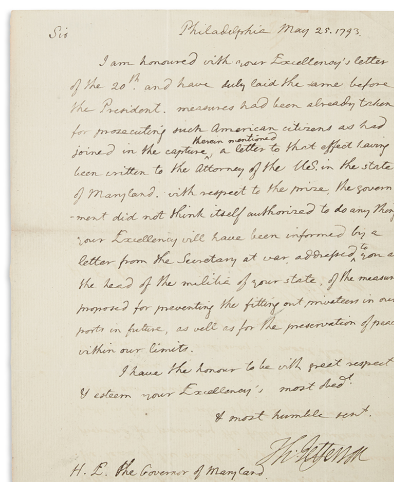 Sir Philadelphia May 25. 1793.
I am honoured with your Excellency's letter
of the 20th. and have duly laid the same before
the President. measures had been already taken
for prosecuting such American citizens as had
joined in the capture therein mentioned, a letter to that effect having
been written to the Attorney of the U.S. in the state
of Maryland. with respect to the prize, the govern
-ment did not think itself authorized to do any thing
your Excellency will have been informed by a
letter from the Secretary at war addressed to you a
the head of the militia of your state, of the measure
proposed for preventing the fitting out privateers in our
ports in future, as well as for the preservation of peace
within our limits.
I have the honour to be with great respect
& esteem your Excellency's most obedt.
& most humble servt.
Th: Jefferson
H. E. the Governor of Maryland